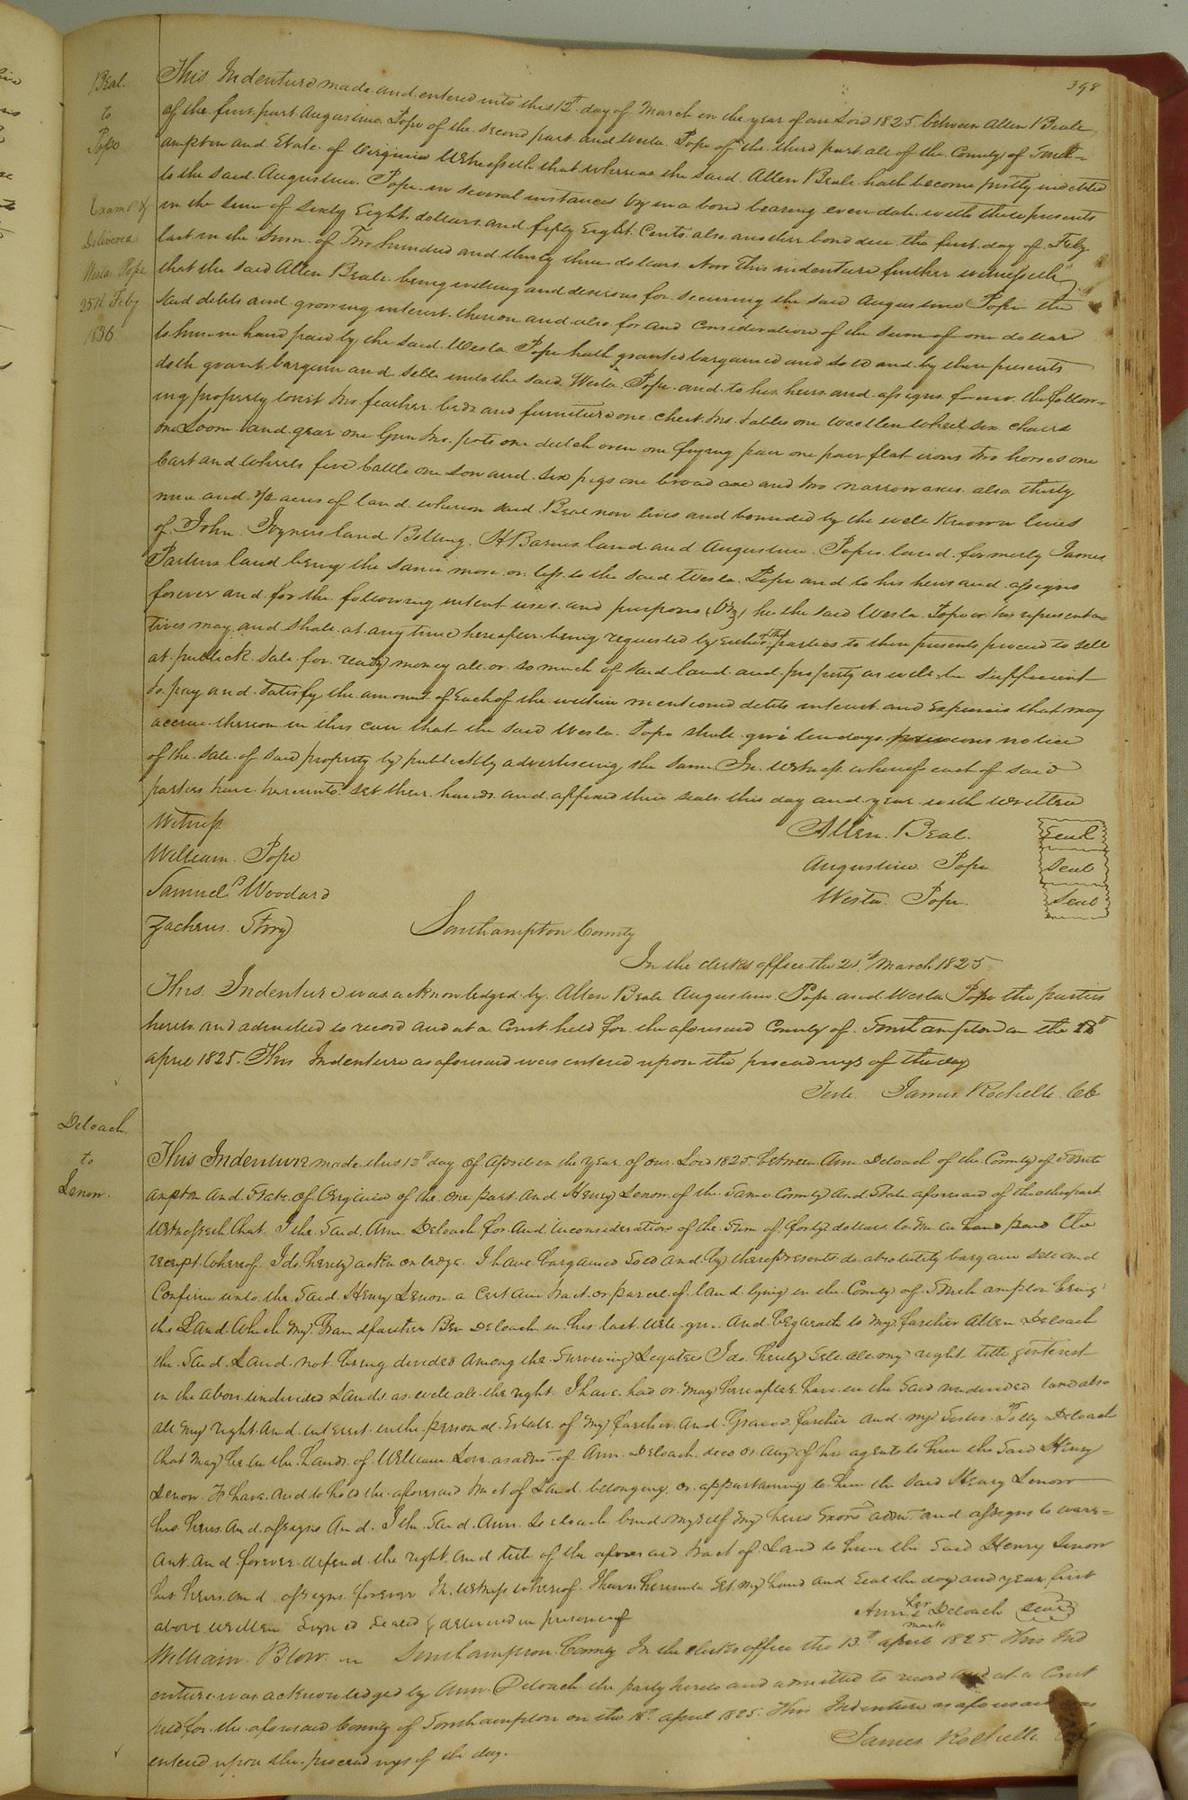 398
Beal
to
Pope
Examd &
Delivered
Westn Pope
25th Feby
1836
This Indenture made and entered into this 12th day of March in the year of our Lord 1825 between Allen Beale
of the first part Augustine Pope of the second part and Westn Pope of the third part all of the County of South=
ampton and State of Virginia Witnesseth that whereas the said Allen Beale hath become justly indebted
to the said Augustine Pope in several instances by in a bond bearing even date with these presents
in the sum of Sixty Eight dollars and fifty Eight Cents also another bond due the first day of Feby
last in the sum of Two hundred and thirty three dollars Now This indenture further witnesseth
that the said Allen Beale being willing and desirous for securing the said Augustine Pope the
said debts and growing interest thereon and also for and Consideration of the sum of one dollar
to him in hand paid by the said Westn Pope hath granted bargained and sold and by these presents
doth grant bargain and sell unto the said Westn Pope and to his heirs and assigns forever the follow=
ing property towit two feather beds and furniture one chest two tables one woollen wheel six chairs
one Loom and gear one Gun two pots one dutch oven one frying pan one pair flat irons two horses one
Cart and wheels five Cattle one sow and six pigs one broad axe and two narrow axes also thirty
nine and 1/2 acres of land whereon said Beal now lives and bounded by the well known lines
of John Joyners land Billing H Barnes land and Augustine Popes land formerly James
land being the same more or less to the said Westn Pope and to his heirs and assigns
forever and for the following intent uses and purposes (viz) he the said Westn Pope or his representa
tives may and shall at any time hereafter being requested by Either of the parties to these presents proceed to sell
at publick sale for ready money all or so much of said land and property as will be sufficient
to pay and satisfy the amount of Each of the within mentioned debts interest and Expences that may
accrue thereon in this case that the said Westn Pope shall give ten days previous notice
of the sale of said property by publickly advertiseing the same In Witness whereof each of said
parties have hereunto set their hands and affixed their seals this day and year with written
Witness Allen Beal Seal
William Pope Augustine Pope Seal
Samuel P Woodard Westn Pope Seal
Zacheus
Southampton County
In the clerks office the 21st March 1825
This Indenture was acknowledged by Allen Beale Augustine Pope and Westn Pope the parties
hereto and admitted to record and at a Court held for the aforesaid County of Southampton on the 18th
april 1825 This Indenture as aforesaid was entered upon the proceedings of the day
Teste James Rochelle CC
Deloach
to
Lenow
This Indenture made this 13th day of April in the Year of our Lord 1825 between Ann Deloach of the County of South
ampton and State of Virginia of the one part and Henry Lenow of the Same County and State aforesaid of the other part
Witnesseth that I the said Ann Deloach for and inconsideration of the sum of forty dollars to me in hand paid the
receipt whereof I do hereby acknowledge I have bargained sold and by these presents do absolutely bargain sell and
Confirm unto the said Henry Lenow a certain tract or parcel of land lying in the County of Southampton being
the Land which my Grandfarther Ben Deloach in his last will give and bequeath to my farther Allen Deloach
the said Land not being divided among the Surviving Legatees I do hereby sell all my right title interest
in the above undivided Lands as well all the right I have had or may hereafter have in the said undivided land also
all my right and interest in the personal Estate of my farther and Grand farther and my Sister Polly Deloach
that may be in the hands of William Low as admr of Ann Deloach decd or any of his agents to him the said Henry
Lenow To have and to hold the aforesaid tract of Land belonging or appertaining to him the said Henry Lenow
his heirs and assigns And I the said Ann Deloach bind myself my heirs Exors admr and assigns to warr=
ant and forever defend the right and title of the aforesaid tract of Land to him the said Henry Lenow
his heirs and assigns forever In witness whereof I have hereunto set my hand and seal the day and year first
above written Signed Sealed & delivered in presence of Ann her mark Deloach Seal
William Blow Southampton County In the clerks office the 13th april 1825 This Ind
enture was acknowledged by Ann Deloach the party hereto and admitted to record and at a Court
held for the aforesaid County of Southampton on the 18th april 1825 This Indenture as aforesaid was
entered upon the proceedings of the day. James Rochelle